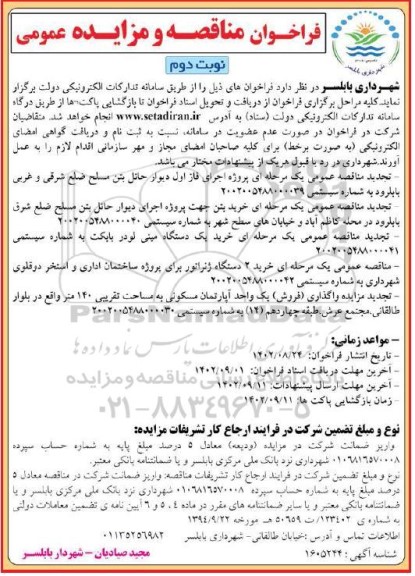 فراخوان مناقصه و مزایده عمومی
شهرداری بابلسر
نوبت دوم
شهرداری بابلسر در نظر دارد فراخوان های ذیل را از طریق سامانه تدارکات الکترونیکی دولت برگزار
نماید. کلیه مراحل برگزاری فراخوان از دریافت و تحویل اسناد فراخوان تا بازگشایی پاکت‌ها از طریق درگاه
سامانه تدارکات الکترونیکی دولت (ستاد) به آدرس www.setadiran.ir انجام خواهد شد. متقاضیان
شرکت در فراخوان در صورت عدم عضویت در سامانه، نسبت به ثبت نام و دریافت گواهی امضای
الکترونیکی (به صورت برخط) برای کلیه صاحبان امضای مجاز و مهر سازمانی اقدام لازم را به عمل
آورند. شهرداری در رد یا قبول هریک از پیشنهادات مختار می باشد.
- تجدید مناقصه عمومی یک مرحله ای پروژه اجرای فاز اول دیوار حائل بتن مسلح ضلع شرقی و غربی
بابلرود به شماره سیستمی ۲۰۰۲۰۰۵۴۸۸۰۰۰۰۳۹
- تجدید مناقصه عمومی یک مرحله ای خرید بتن جهت پروژه اجرای دیوار حائل بتن مسلح ضلع شرق
بابلرود در محله کاظم آباد و خیابان های سطح شهر به شماره سیستمی ۲۰۰۲۰۰۵۴۸۸۰۰۰۰۴۰
- تجدید مناقصه عمومی یک مرحله ای خرید یک دستگاه مینی لودر بابکت به شماره سیستمی
۲۰۰۲۰۰۵۴۸۸۰۰۰۰۴۱
- مناقصه عمومی یک مرحله ای خرید ۲ دستگاه ژنراتور برای پروژه ساختمان اداری و استخر دوقلوی
شهرداری به شماره سیستمی ۲۰۰۲۰۰۵۴۸۸۰۰۰۰۴۲
- تجدید مزایده واگذاری (فروش) یک واحد آپارتمان مسکونی به مساحت تقریبی ۱۴۰ متر واقع در بلوار
طالقانی، مجتمع عرش، طبقه چهاردهم (۱۴) به شماره سیستمی ۵۰۰۲۰۰۵۴۸۸۰۰۰۰۳۰
- مواعد زمانی:
- تاریخ انتشار فراخوان: ۱۴۰۲/۰۸/۲۴
- آخرین مهلت دریافت اسناد فراخوان: ۱۴۰۲/۰۹/۰۱
- آخرین مهلت ارسال پیشنهادات: ۱۴۰۲/۰۹/۱۱
- زمان بازگشایی پاکت ها: ۱۴۰۲/۰۹/۱۱
۰۲۱-۸۸۳۴۹۶۷۰-۵
نوع و مبلغ تضمین شرکت در فرایند ارجاع کار تشریفات مزایده:
واریز ضمانت شرکت در مزایده (ودیعه) معادل ۵ درصد مبلغ پایه به شماره حساب سپرده
۰۱۰۶۸۱۶۵۷۰۰۰۸ شهرداری نزد بانک ملی مرکزی بابلسر و یا ضمانتنامه بانکی معتبر.
نوع و مبلغ تضمین شرکت در فرایند ارجاع کار تشریفات مناقصه: واریز ضمانت شرکت در مناقصه معادل ۵
درصد مبلغ پایه به شماره حساب سپرده ۰۱۰۶۸۱۶۵۷۰۰۰۸ شهرداری نزد بانک ملی مرکزی بابلسر و یا
ضمانتنامه بانکی معتبر و یا سایر ضمانتنامه های مقرر در ماده ۴، ۵ و ۶ آیین نامه ی تضمین معاملات دولتی
به شماره ی ۱۲۳۴۰۲/ت ۵۰۶۵۹ هـ مورخه ۱۳۹۴/۹/۲۲
اطلاعات تماس و آدرس: خیابان طالقانی- شهرداری بابلسر ۰۱۱۳۵۲۵۶۹۸۲
شناسه آگهی: ۱۶۰۵۲۴۴
مجید صیادیان – شهردار بابلسر